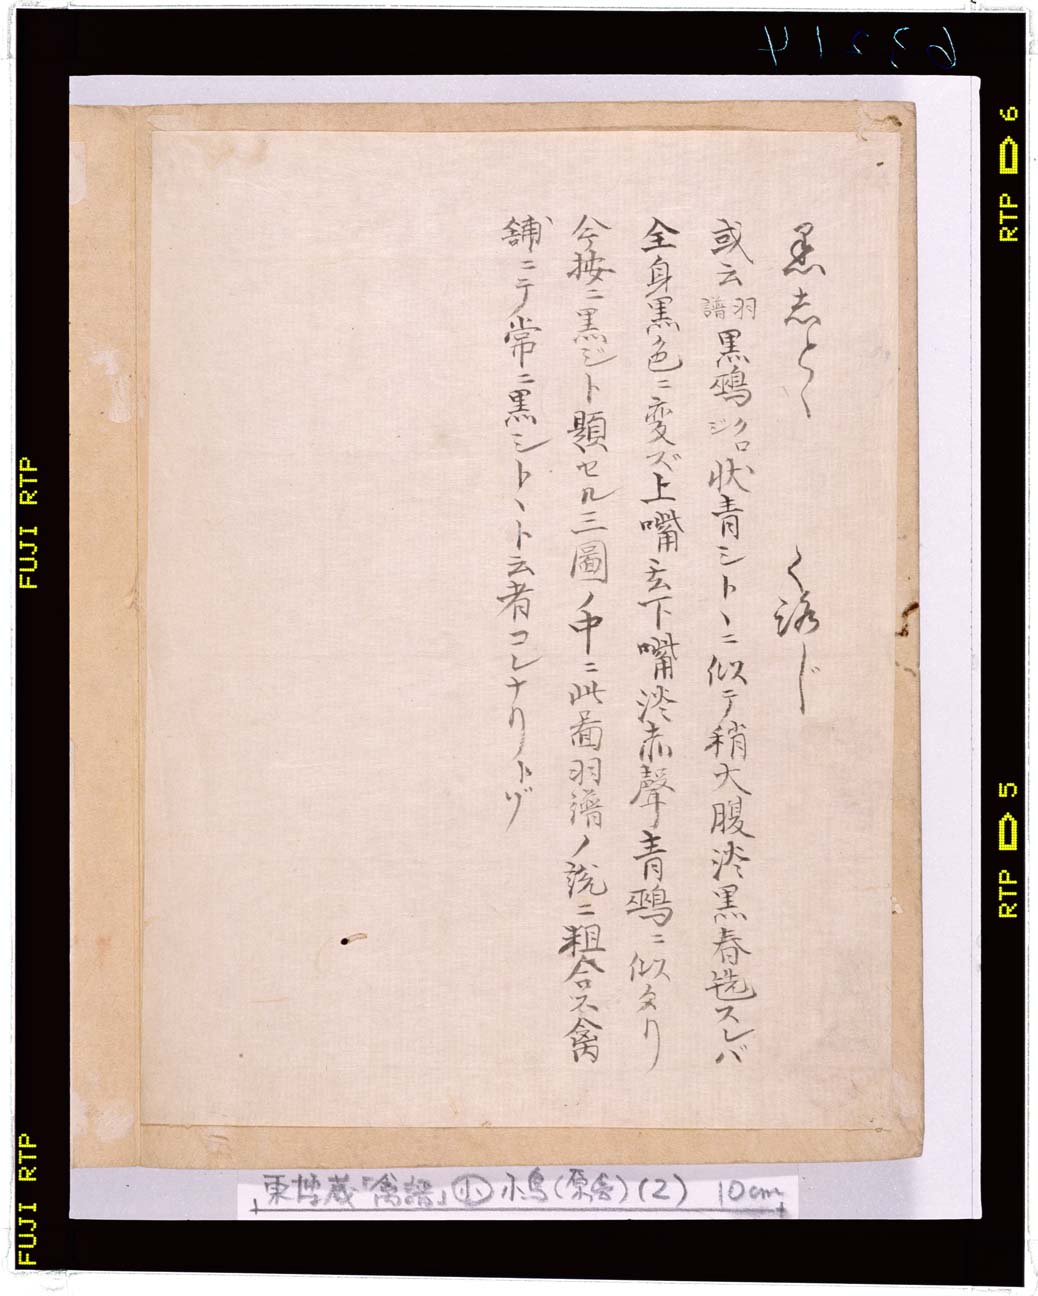 黒志とゝ　くろじ
或云羽譜黒鵐クロジ状青シトヽニ似テ稍大腹淡黒春 スレバ
全身黒色ニ変ズ上嘴玄下嘴淡赤聲青鵐ニ似タリ
今按ニ黒ジト題セル三圖ノ中ニ此啚羽譜ノ説ニ粗合ス禽
舗ニテ常ニ黒シトヽト云者コレナリトゾ
東博蔵「禽譜」小 小鳥(原舎)(2) 10cm
63214
RTP 6
RTP 5
FUJI RTP
FUJI RTP